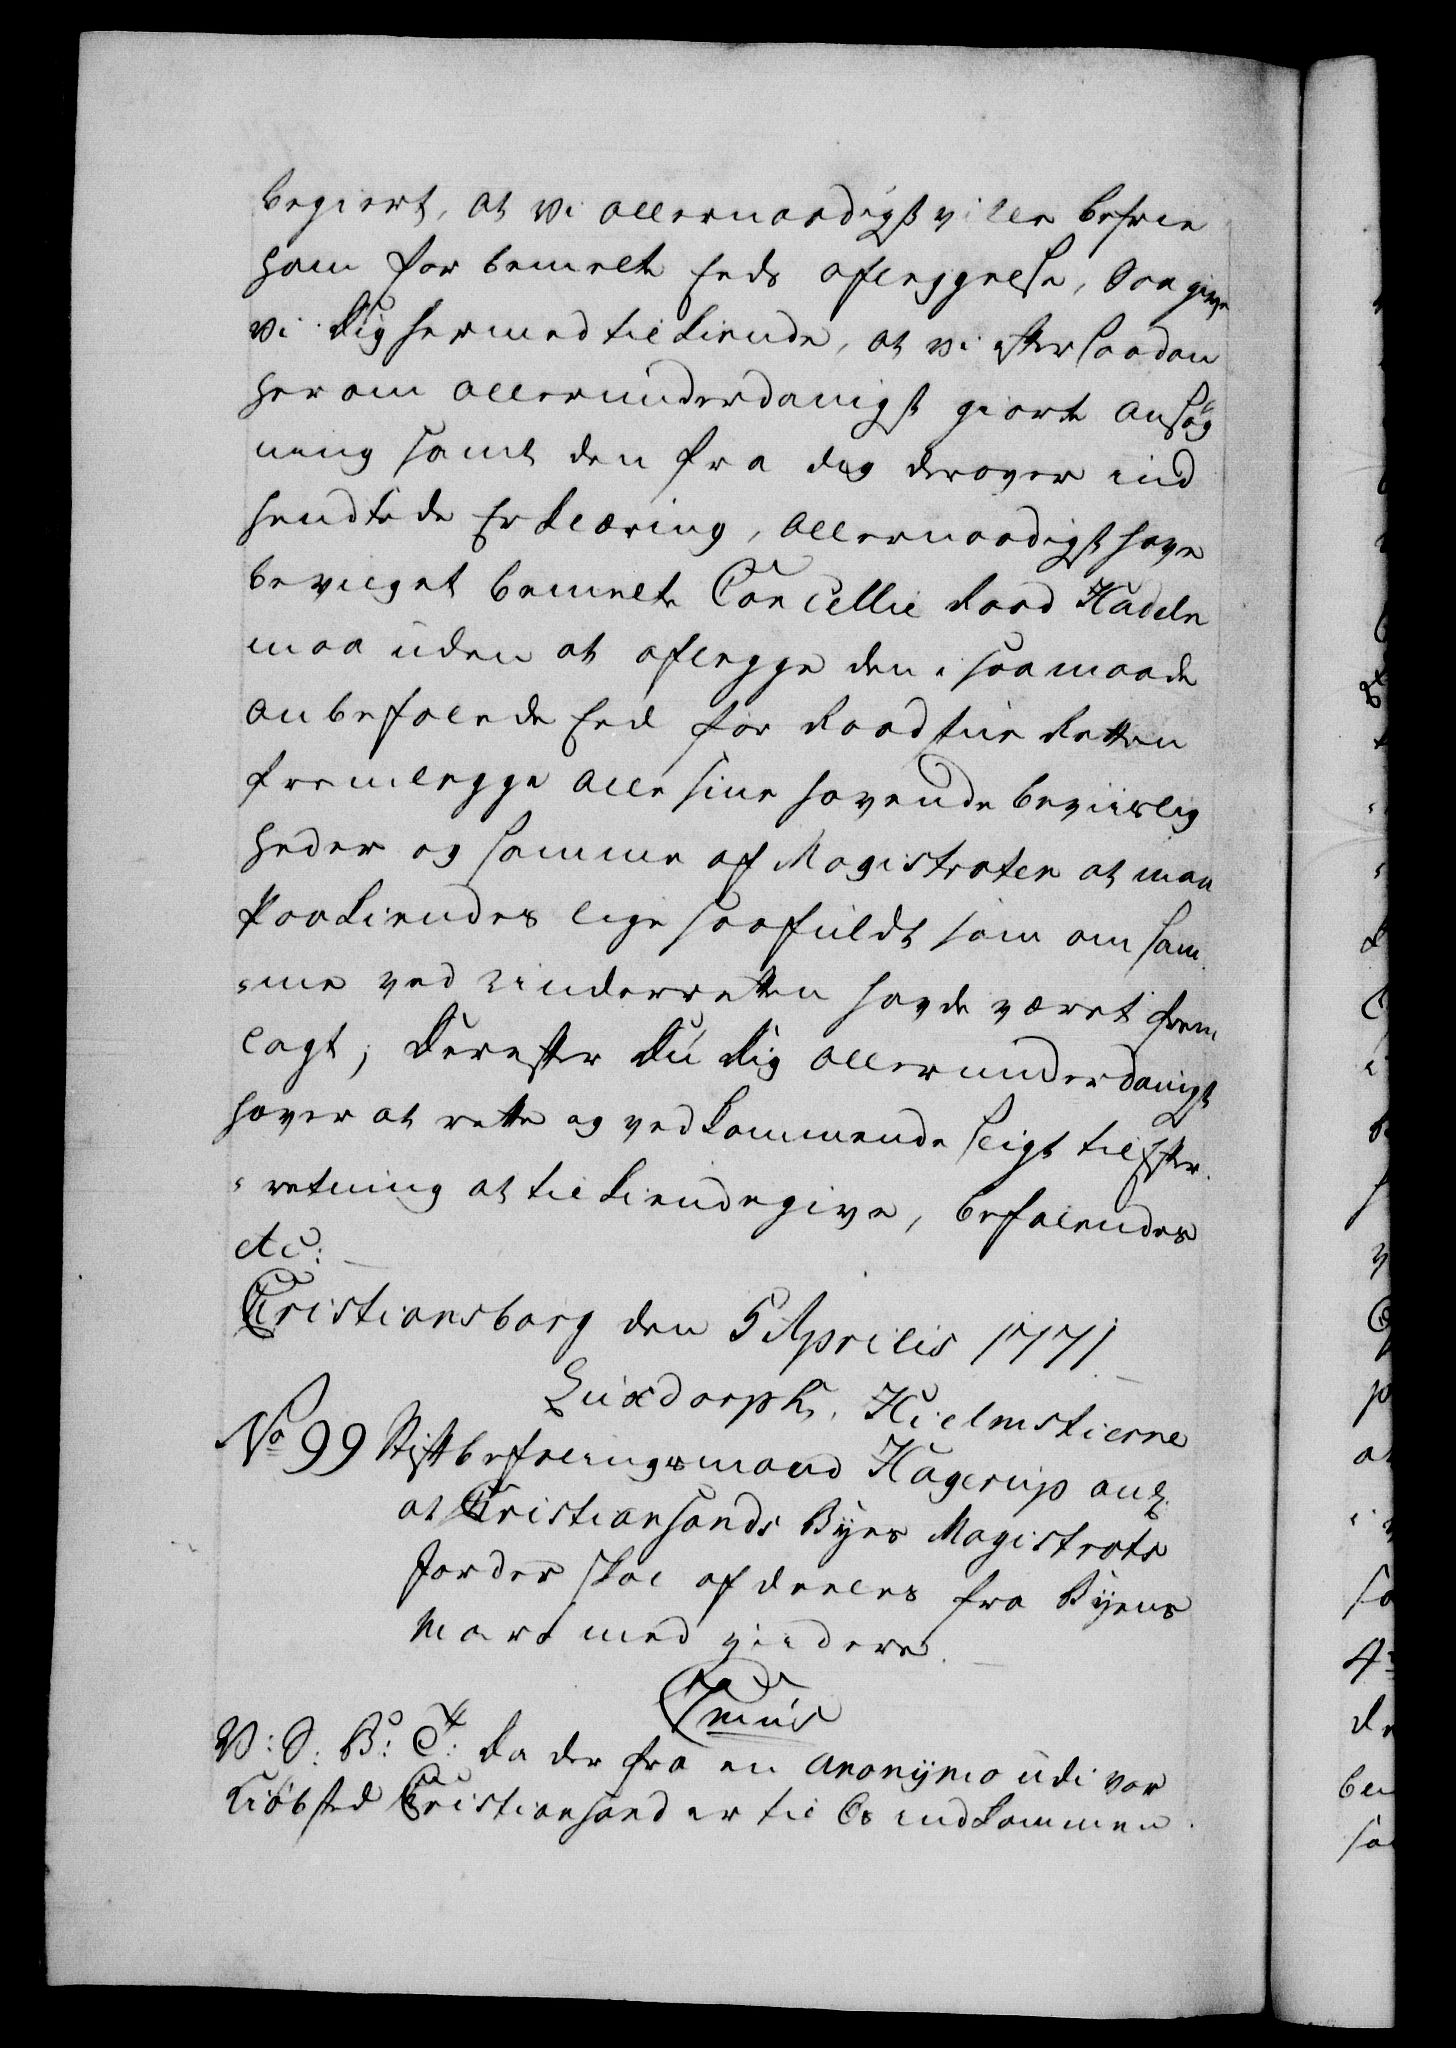 begiert, at vi allernaadigst ville befrie
ham for bemelte Eeds aflæggelse, Saa give
vi Dig hermed tilkiende, at vi efter saadan
herom allerunderdanigst giorte ansøg
ning samt den fra dig derover ind
sendte de Erklæring, allernaadigst have
bevilget bemelte Cancellie Raad Hadeln
maa uden at aflegge den i saa maade
anbefalede Eed for Raadstue Retten
fremlegge alle sine havende beviislig
heder og samme af Magistraten at maa
Paakiendes lige saafuldt som om sam
-me ved Underretten havde været frem
lagt; Derefter Du Dig allerunderdanigst
haver at rette og vedkommende sligt til Efter
-retning at tilkiendegive, befalendes
etc:
Christiansborg den 5 Aprilis 1771.
Luxdorph, Hielmstierne
No 99 Stiftbefalingsmand Hagerup anl:
at Christiansands Byes Magistrats
Jorder skal afdeeles fra Byens
Mark med videre.
C 7mus
V: S: B: T: Da der fra en Anonymo udi vor
Kiøbsted Christiansand er til Os indkommen